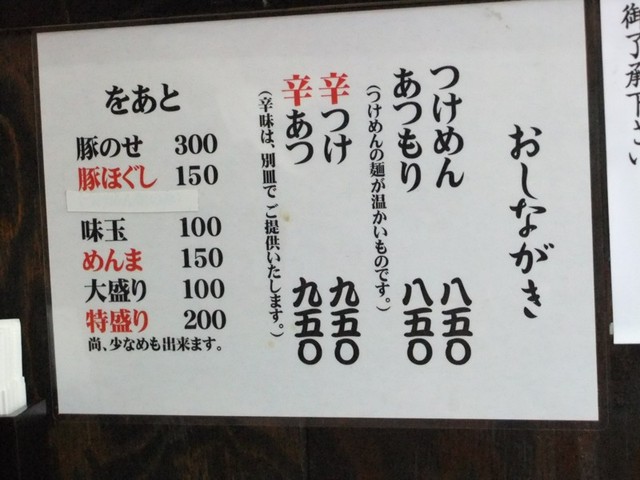 おしながき
つけめん 八五〇
あつもり 八五〇
(つけめんの麺が温かいものです。)
辛つけ 九五〇
辛あつ 九五〇
(辛味は、別皿でご提供いたします。)
をあと
豚のせ 300
豚ほぐし 150
味玉 100
めんま 150
大盛り 100
特盛り 200
尚、少なめも出来ます。
御了承下さい